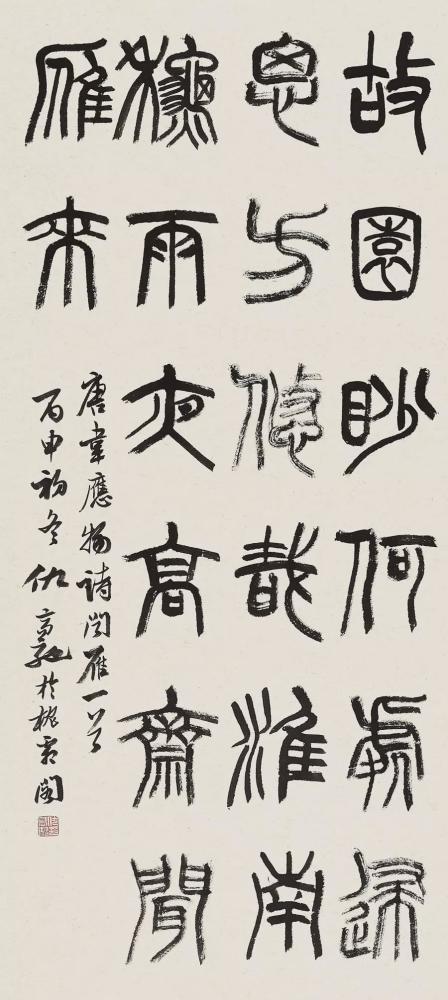 故園眇何處歸
思方悠哉淮南
龝雨夜高齋聞
雁来
唐韋應物詩聞雁一首
丙申初冬仇高馳於閣